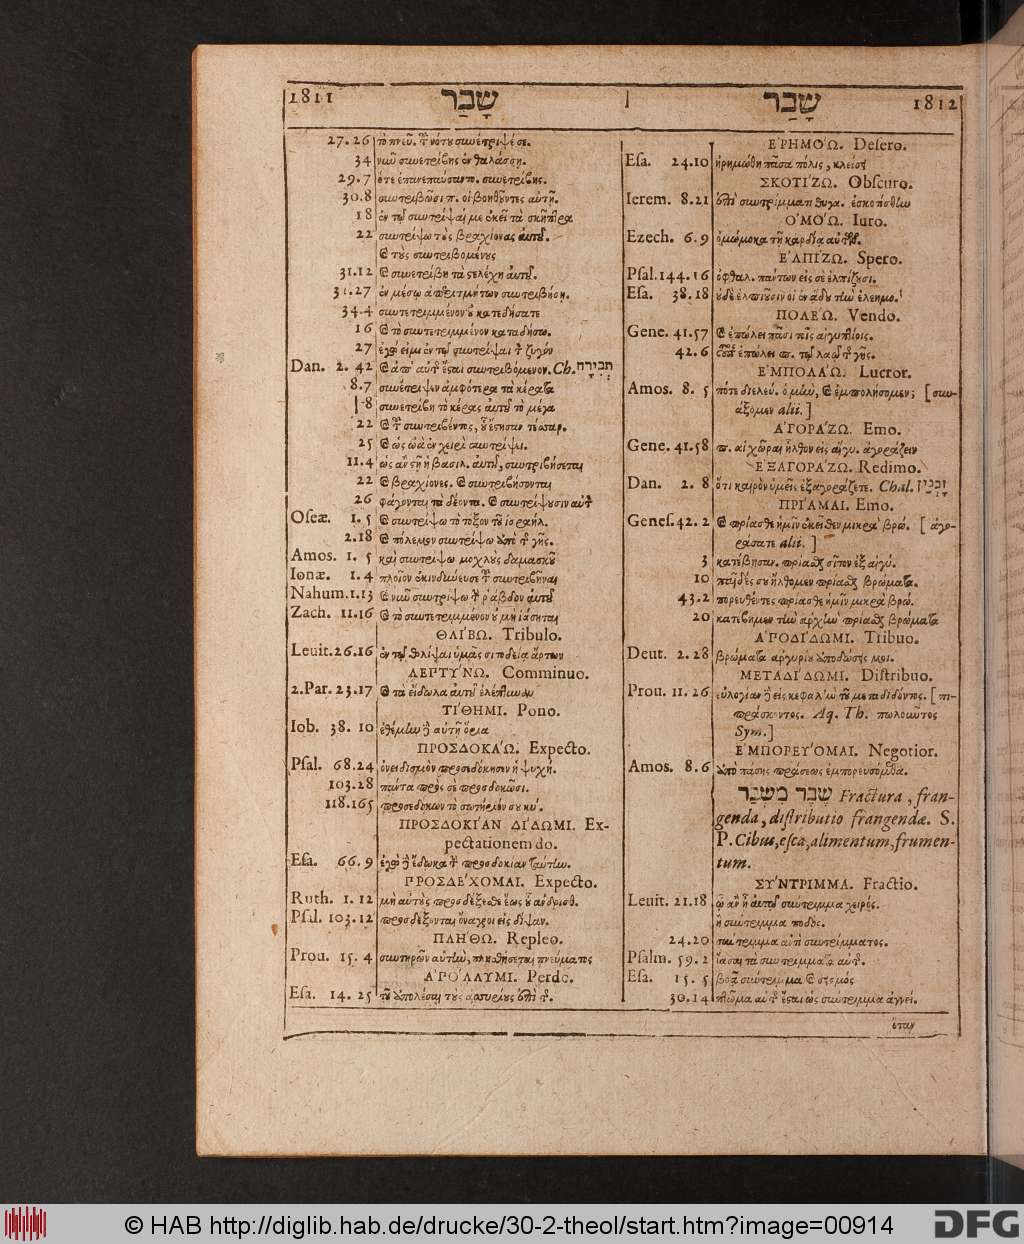 1811 שָׁבַר
שָׁבַר 1812
27.26 τὸ πνεῦ. τοῦ νότου συνέτριψέ σε.
34 νῦν συνετρίβης ἐν θαλάσσῃ.
29.7 ὅτε ἐπανεπαύσαντο. συνετρίβης.
30.8 συντριβῶσι π. οἱ βοηθοῦντες αὐτῇ.
18 ἐν τῷ συντρίψαι με ἐκεῖ τὰ σκῆπτρα
22 συντρίψω τοὺς βραχίονας αὐτοῦ.
καὶ τοὺς συντριβομένους
31.12 καὶ συνετρίβη τὰ στελέχη αὐτοῦ.
31.27 ἐν μέσῳ ἀπεριτμήτων συντριβήσῃ.
34.4 συντετριμμένον οὐ κατεδήσατε
16 καὶ τὸ συντετριμμένον καταδήσω.
27 ἐγώ εἰμι ἐν τῷ συντρίψαι τ ζυγόν
Dan. 2. 42 καὶ ἀπ' αὐτῆς ἔσται συντριβόμενον. Ch. תְּבִירָה
8.7 συνέτριψεν ἀμφότερα τὰ κέρατα
8 συνετρίβη τὸ κέρας αὐτοῦ τὸ μέγα
22 καὶ τοῦ συντριβέντος, οὗ ἔστησαν τέσσαρ.
25 καὶ ὡς ὠὰ ἐν χειρὶ συντρίψει.
11.4 ὡς ἂν στῇ ἡ βασιλ. αὐτοῦ, συντριβήσεται
22 καὶ βραχίονες. καὶ συντριβήσονται
26 φάγονται τὰ δέοντα. καὶ συντρίψουσιν αὐτὸν
Oseæ. 1. 5 καὶ συντρίψω τὸ τόξον τοῦ ἰσραήλ.
2.18 καὶ πόλεμον συντρίψω ἀπὸ τῆς γῆς.
Amos. 1. 5 καὶ συντρίψω μοχλοὺς δαμασκοῦ
Ionæ. 1. 4 πλοῖον ἐκινδύνευσε τοῦ συντριβῆναι
Nahum. 1.13 καὶ νῦν συντρίψω τὴν ῥάβδον αὐτοῦ
Zach. 11.16 καὶ τὸ συντετριμμένον οὐ μὴ ἰάσηται
ΘΛΙ΄ΒΩ. Tribulo.
Leuit. 26.16 ἐν τῷ θλίψαι ὑμᾶς σιτοδείᾳ ἄρτων
ΛΕΠΤΥ΄ΝΩ. Comminuo.
2.Par. 23.17 καὶ τὰ εἴδωλα αὐτοῦ ἐλέπτυναν
ΤΙ΄ΘΗΜΙ. Pono.
Iob. 38. 10 ἐθέμην δὲ αὐτῇ ὅρια
ΠΡΟΣΔΟΚΑ΄Ω. Expecto.
Psal. 68.24 ὀνειδισμὸν προσεδόκησεν ἡ ψυχή.
103.28 πάντα πρὸς σὲ προσδοκῶσι.
118.165 προσεδόκων τὸ σωτήριόν σου κύ.
ΠΡΟΣΔΟΚΙ΄ΑΝ ΔΙ΄ΔΩΜΙ. Ex-
pectationem do.
Esa. 66. 9 ἐγὼ δὲ ἔδωκα τὴν προσδοκίαν ταύτην.
ΠΡΟΣΔΕ΄ΧΟΜΑΙ. Expecto.
Ruth. 1. 12 μὴ αὐτοὺς προσδέξεσθε ἕως οὗ ἀνδρωθ.
Psal. 103.12 προσδέξονται ὄναγροι εἰς δίψαν.
ΠΛΗ΄ΘΩ. Repleo.
Prou. 15. 4 συντηρῶν αὐτὴν, πλησθήσεται πνεύματος
ἈΠΟ΄ΛΛΥΜΙ. Perdo.
Esa. 14. 25 τοῦ ἀπολέσαι τοὺς ἀσσυρίους ἐπὶ τ.
ἘΡΗΜΟ΄Ω. Desero.
Esa. 24.10 ἠρημώθη πᾶσα πόλις, κλείσει
ΣΚΟΤΙ΄ΖΩ. Obscuro.
Ierem. 8.21 ἐπὶ συντρίμματι θυγα. ἐσκοτίσθην
ὈΜΟ΄Ω. Iuro.
Ezech. 6. 9 ὀμώμοκα τῇ καρδίᾳ αὐτῶν.
ἘΛΠΙ΄ΖΩ. Spero.
Psal. 144.16 ὀφθαλ. πάντων εἰς σὲ ἐλπίζουσι.
Esa. 38.18 οὐδὲ ἐλπιοῦσιν οἱ ἐν ᾅδου τὴν ἐλεημο.
ΠΩΛΕ΄Ω. Vendo.
Gene. 41.57 καὶ ἐπώλει πᾶσι τοῖς αἰγυπτίοις.
42.6 οὗτος ἐπώλει π. τῷ λαῷ τῆς γῆς.
ἘΜΠΟΛΑ΄Ω. Lucror.
Amos. 8. 5 πότε διελεύ. ὁ μὴν, καὶ ἐμπολήσομεν; [συν-
άξομεν alii.]
ἈΓΟΡΑ΄ΖΩ. Emo.
Gene. 41.58 π. αἱ χῶραι ἦλθον εἰς αἴγυ. ἀγοράζειν
ἘΞΑΓΟΡΑ΄ΖΩ. Redimo.
Dan. 2. 8 ὅτι καιρὸν ὑμεῖς ἐξαγοράζετε. Chal. זָבְנִין
ΠΡΙ΄ΑΜΑΙ. Emo.
Genes. 42. 2 καὶ πρίασθε ἡμῖν ἐκεῖθεν μικρὰ βρώ. [ἀγο-
ράσατε alii.]
3 κατέβησαν. πρίασθαι σῖτον ἐξ αἰγύ.
10 παῖδές σου ἤλθομεν πρίασθαι βρώματα.
43.2 πορευθέντες πρίασθε ἡμῖν μικρὰ βρώ.
20 κατέβημεν τὴν ἀρχὴν πρίασθαι βρώματα
ἈΠΟΔΙ΄ΔΩΜΙ. Tribuo.
Deut. 2. 28 βρώματα ἀργυρίου ἀποδώσῃ μοι.
ΜΕΤΑΔΙ΄ΔΩΜΙ. Distribuo.
Prou. 11. 26 εὐλογίαν δὲ εἰς κεφαλὴν τοῦ μεταδιδόντος. [πι-
πράσκοντος. Aq. Th. πωλοῦντος
Sym.]
ἘΜΠΟΡΕΥ΄ΟΜΑΙ. Negotior.
Amos. 8. 6 ἀπὸ πάσης πράσεως ἐμπορευσόμεθα.
שֶׁבֶר מַשְׁבֵּר Fractura, fran-
genda, distributio frangendæ. S.
P. Cibus, esca, alimentum, frumen-
tum.
ΣΥ΄ΝΤΡΙΜΜΑ. Fractio.
Leuit. 21.18 ᾧ ἂν ᾖ αὐτῷ σύντριμμα χειρός.
ἢ σύντριμμα ποδός.
24.20 σύντριμμα ἀντὶ συντρίμματος.
Psalm. 59. 2 ἴασαι τὰ συντρίμματα αὐτῆς.
Esa. 15. 5 βοᾷ σύντριμμα καὶ σεισμός
30.14 πτῶμα αὐτῆς ἔσται ὡς σύντριμμα ἀγγεί.
ὅταν
© HAB http://diglib.hab.de/drucke/30-2-theol/start.htm?image=00914
DFG